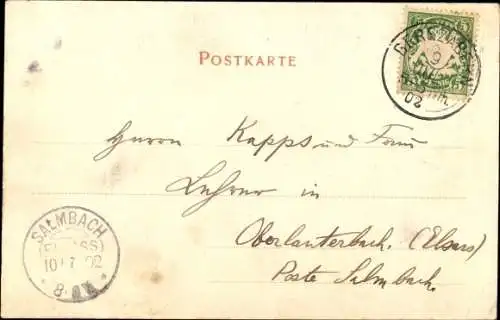 POSTKARTE
5
02
Herrn Kapps und Frau
Lehrer in
Oberlauterbach. (Elsass)
Poste Salmbach.
SALMBACH
(ELSASS)
10 7 02
8-